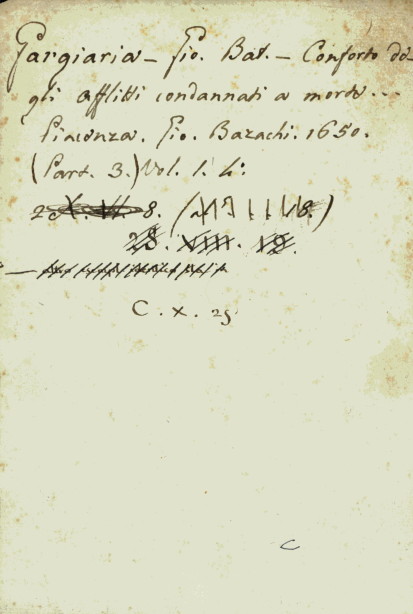 Gargiaria - Gio. Bat. - Conforto de-
gli afflitti condannati a morte...
Piacenza. Gio. Bazachi. 1650.
(Part. 3.) Vol. 1. 4:
8.
28. XVIII. 19.
C. x. 25
C